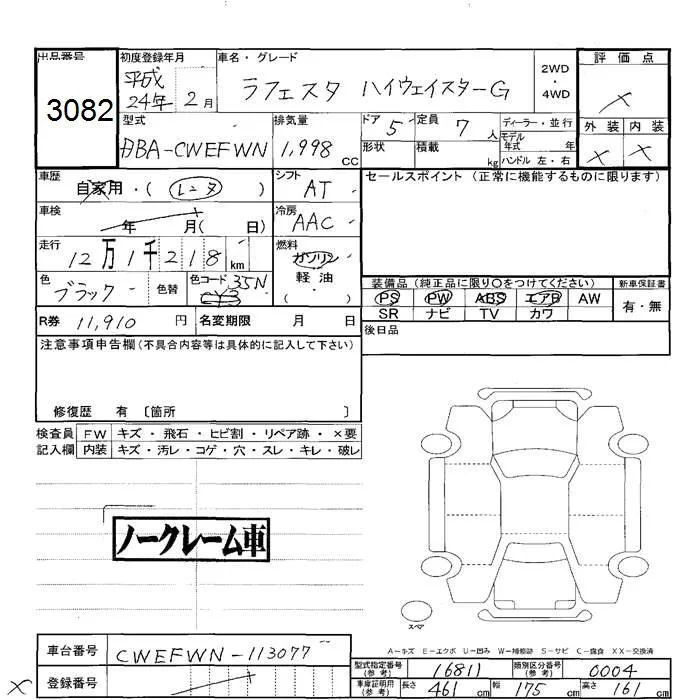 出品番号
3082
初度登録年月
平成
24年 2月
車名・グレード
ラフェスタ ハイウェイスターG
2WD
・
4WD
評価点
×
外装 内装
× ×
型式
DBA-CWEFWN
排気量
1,998 cc
ドア 5
定員 7 人
ディーラー・並行
形状
積載 kg
モデル
年式 年
ハンドル 左・右
車歴
自家用・(レンタ)
シフト
AT
車検
年 月( 日)
冷房
AAC
走行
12万1千218 km
燃料
ガソリン
軽油
( )
色
ブラック
色替
色コード 35N
R券 11,910 円
名変期限 月 日
セールスポイント (正常に機能するものに限ります)
装備品 (純正品に限り○をつけてください)
新車保証書
PS PW ABS エアB AW
SR ナビ TV カワ
有・無
後日品
注意事項申告欄(不具合内容等は具体的に記入して下さい)
修復歴 有 〔箇所 〕
検査員 FW キズ・飛石・ヒビ割・リペア跡・×要
記入欄 内装 キズ・汚レ・コゲ・穴・スレ・キレ・破レ
ノークレーム車
スペア
A-キズ E-エクボ U-凹み W-補修跡 S-サビ C-腐食 XX-交換済
車台番号 CWEFWN-113077
登録番号
×
型式指定番号
(参考)
16811
類別区分番号
(参考)
0004
車庫証明用
(参考)
長さ 461 cm 幅 175 cm 高さ 161 cm